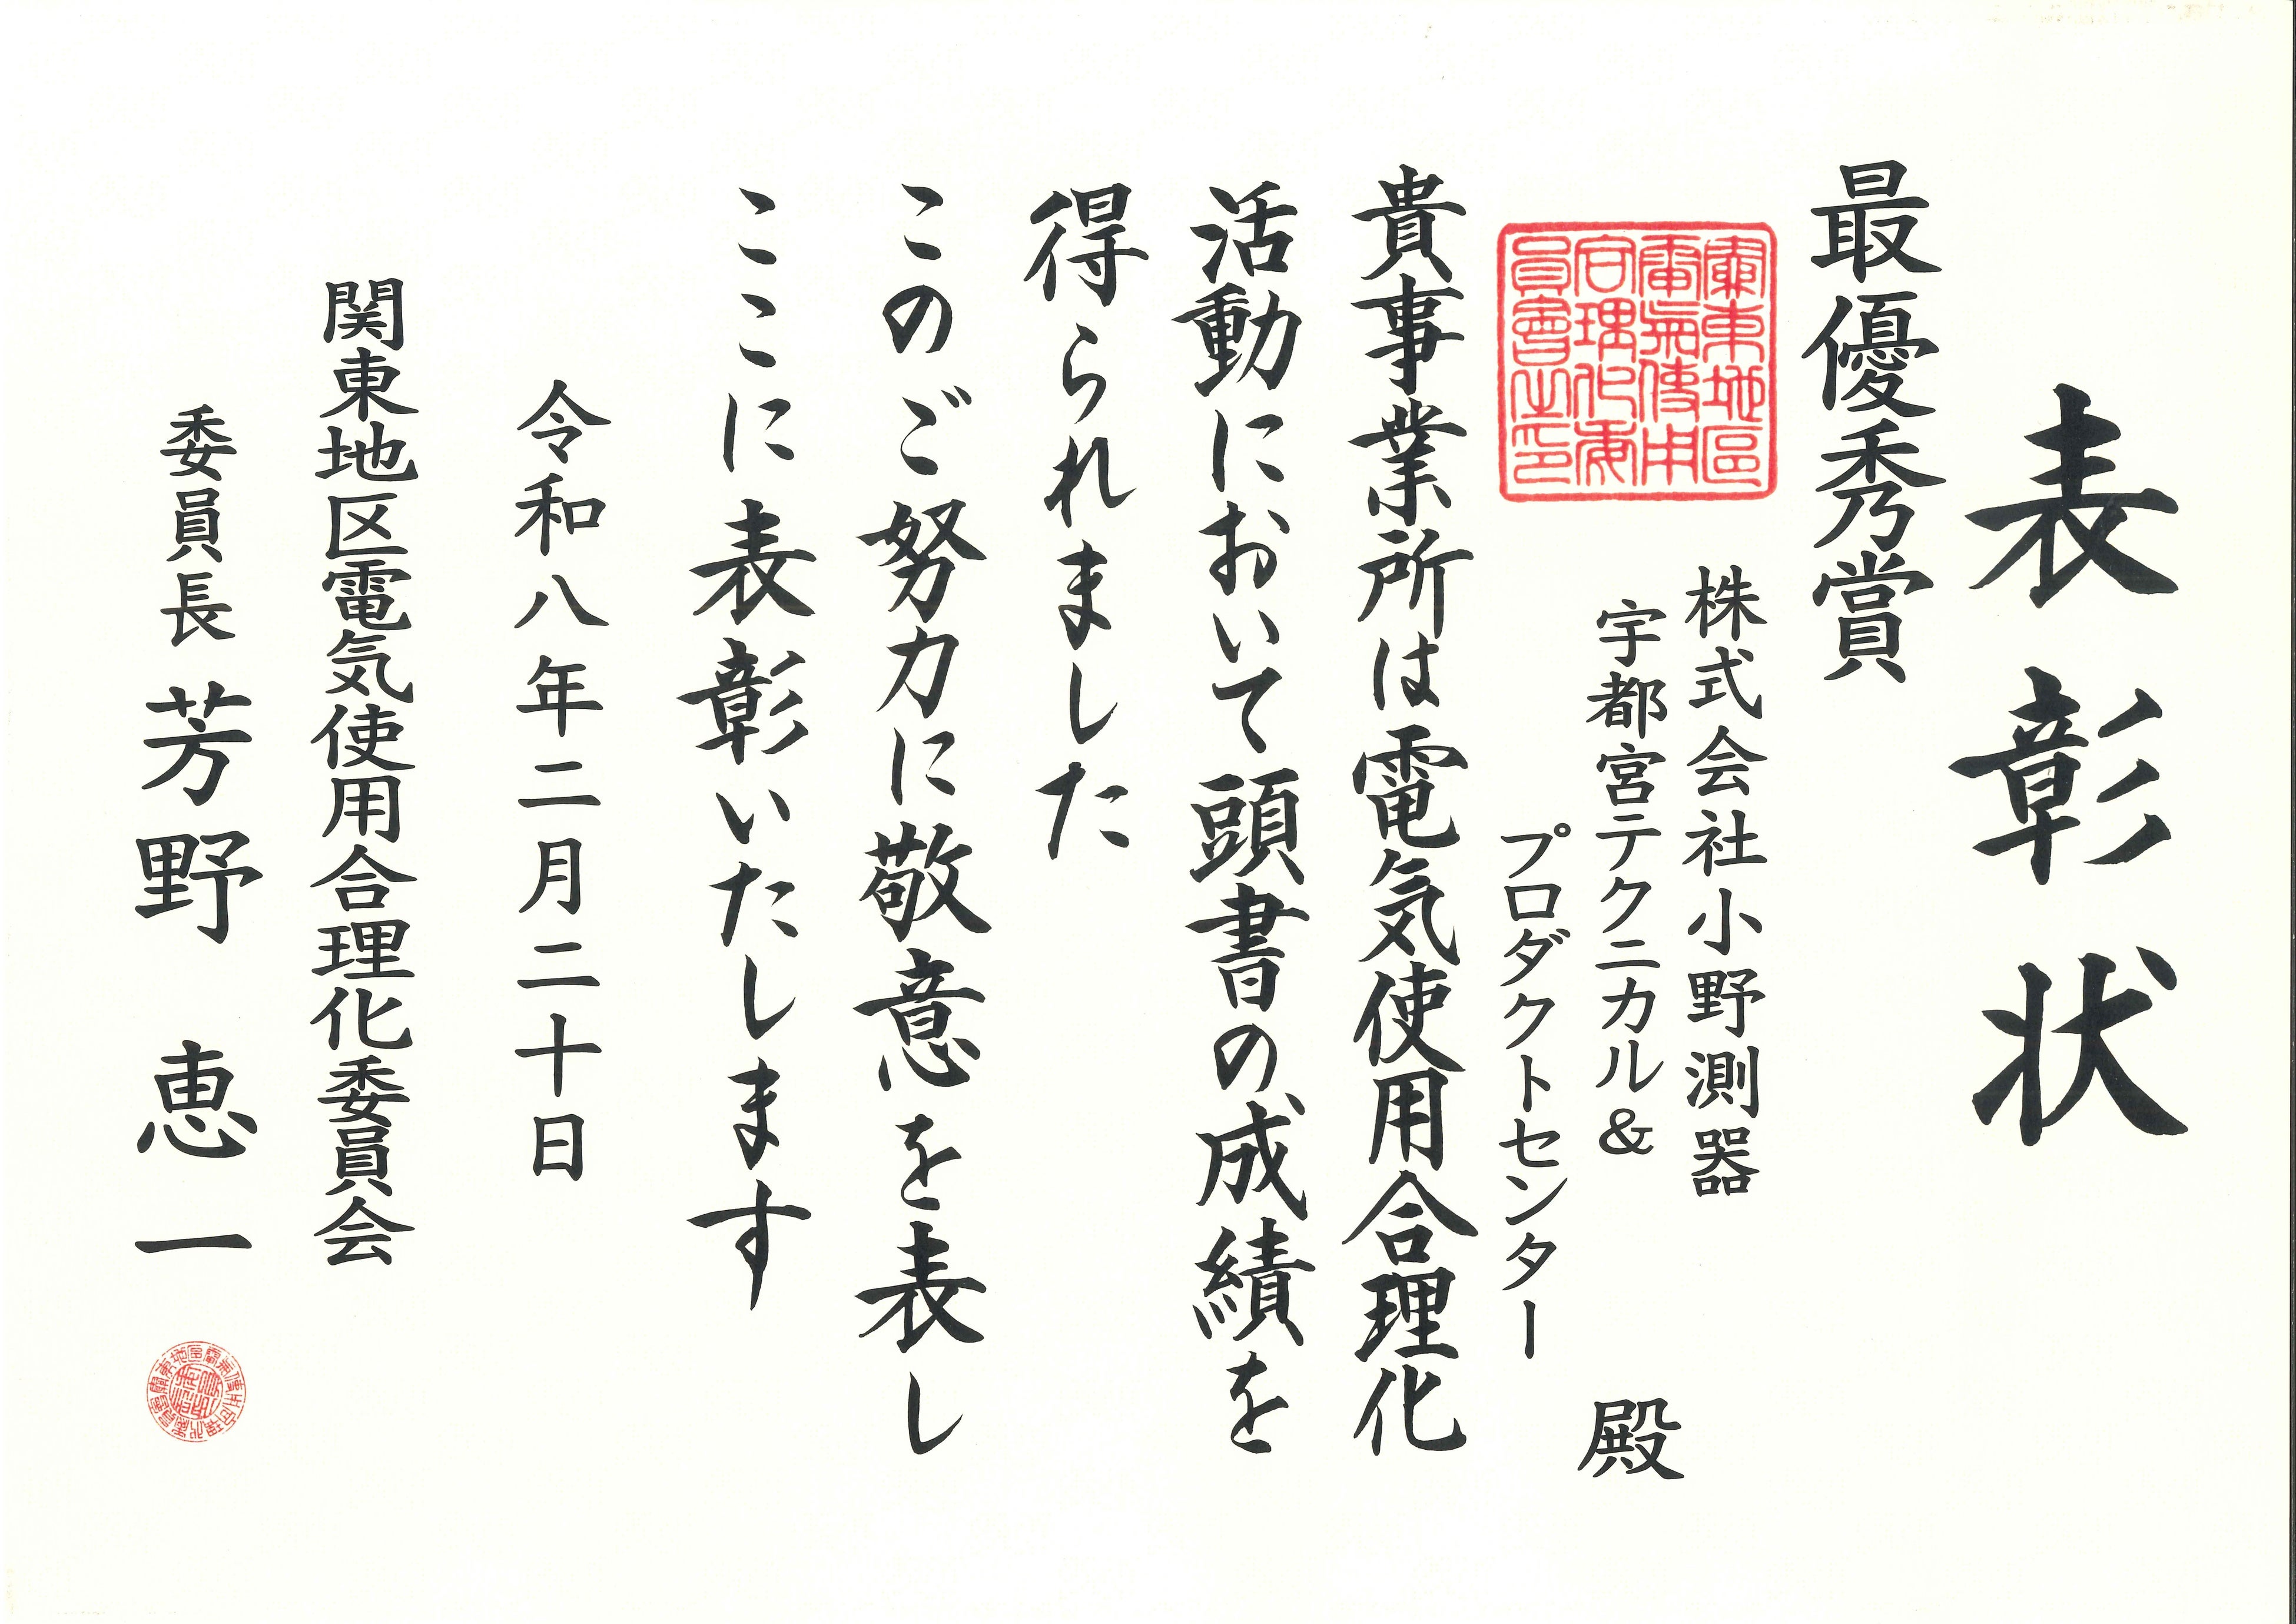 表彰状
最優秀賞
株式会社小野測器
宇都宮テクニカル&
プロダクトセンター
殿
貴事業所は電気使用合理化
活動において頭書の成績を
得られました
このご努力に敬意を表し
ここに表彰いたします
令和八年二月二十日
関東地区電気使用合理化委員会
委員長 芳野 恵一
關東地區
電氣使用
合理化委
員會之印